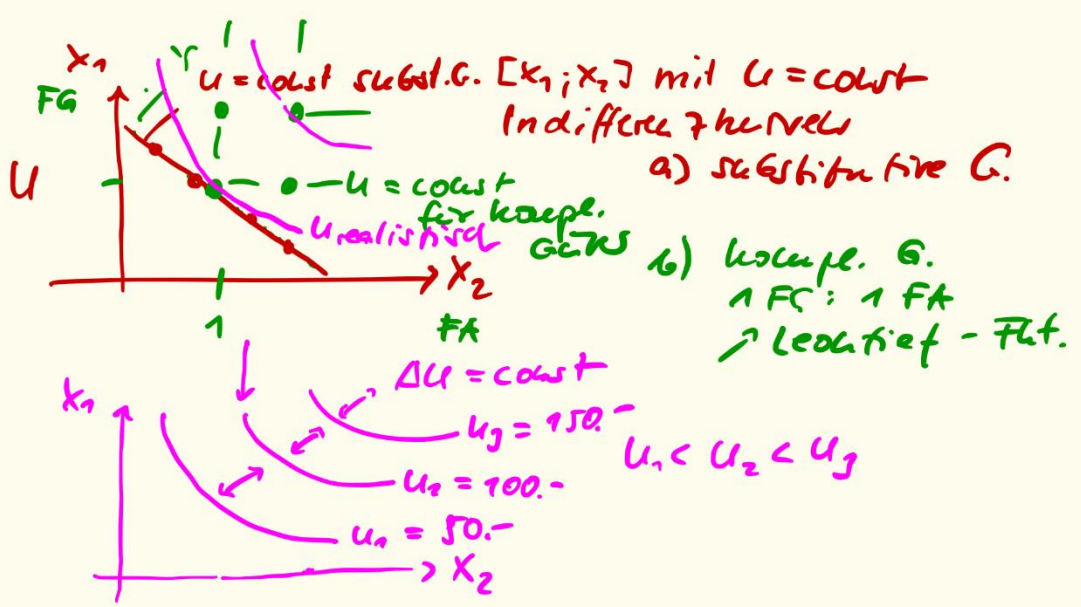 x₁
U = const subst. G. [x₁; x₂] mit U = const
FG
Indifferenzkurven
a) substitutive G.
U
U = const
für kompl.
Güter
U realistisch
b) kompl. G.
1 FG : 1 FA
↗ Leontief - Fkt.
x₂
1
FA
x₁
ΔU = const
U₃ = 150.-
U₁ < U₂ < U₃
U₂ = 100.-
U₁ = 50.-
x₂